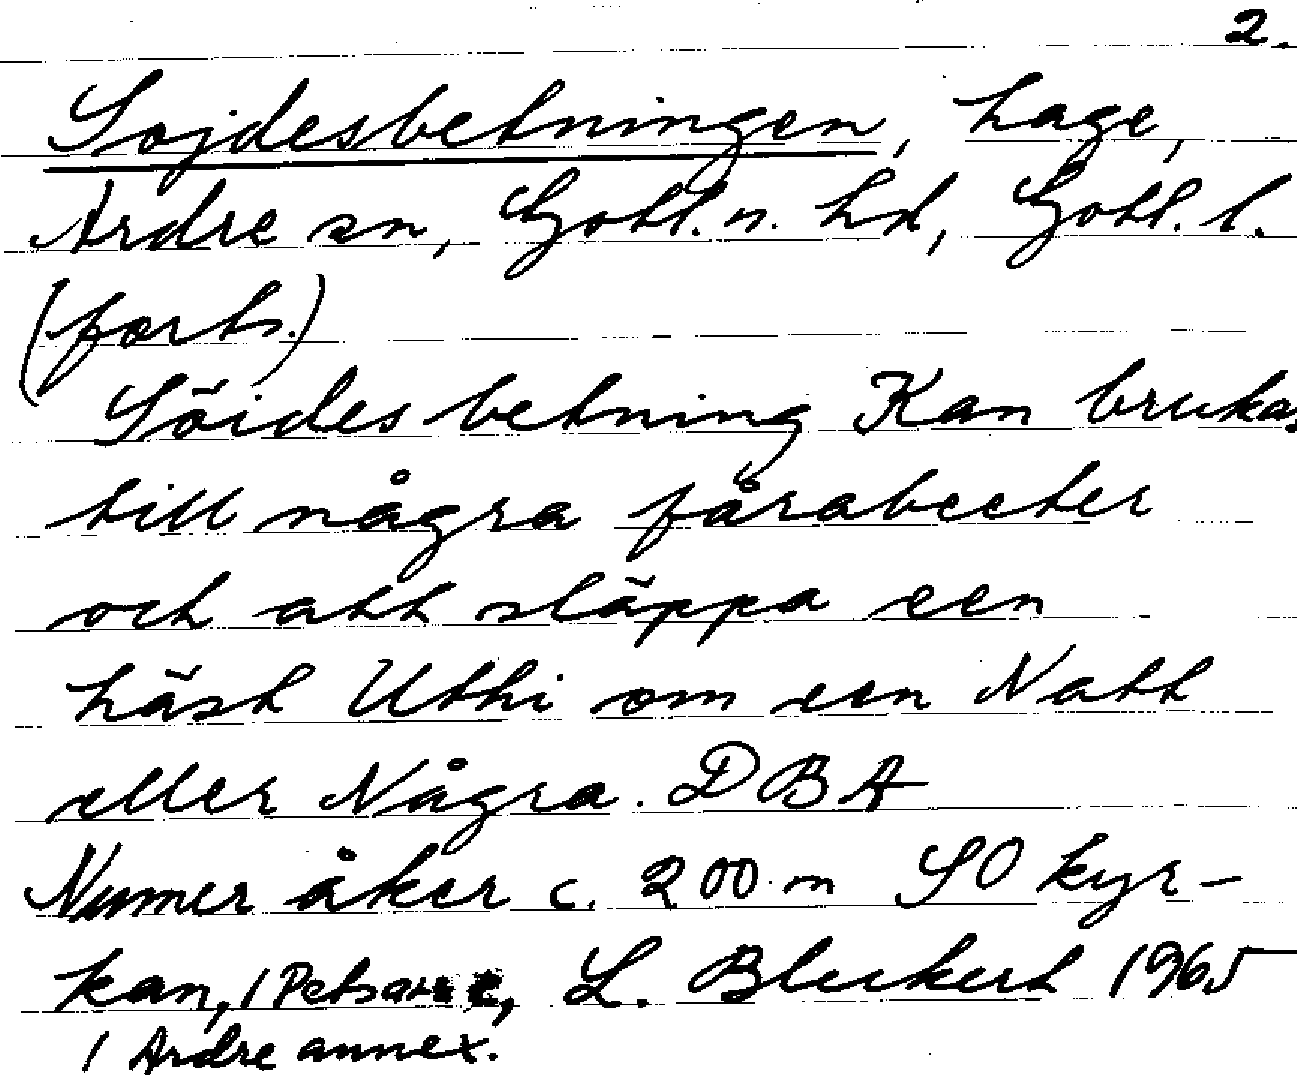 2.
Sojdesbetningen, hage,
Ardre sn, Gotl. n. hd, Gotl. l.
(forts.)
Söides betning Kan bruka.
till några fårabeeter
och att släppa een
häst Uthi om een Natt
eller Några. DBA
Numer åker c. 200 m SO kyr-
kan, / Petsarve, L. Bleckert 1965
/ Ardre annex.